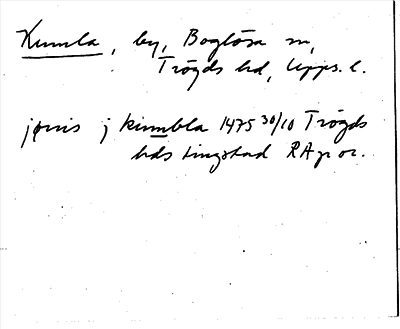 Kumla, by, Boglösa sn,
Trögds hd, Upps. l.
jønis j kimbla 1475 30/10 Trögds
hds tingstad RA p or.